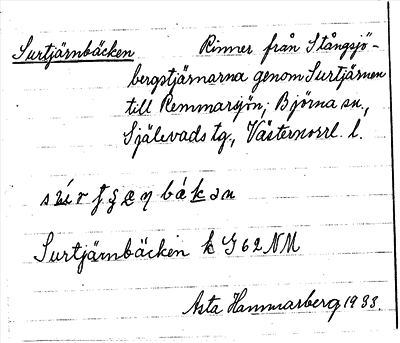 Surtjärnbäcken Rinner från Stångsjö-
bergstjärnarna genom Surtjärnen
till Remmarsjön, Björna sn.,
Själevads tg., Västernorrl. l.
Surtjärnbäcken k G62NM
Asta Hammarberg 1933.